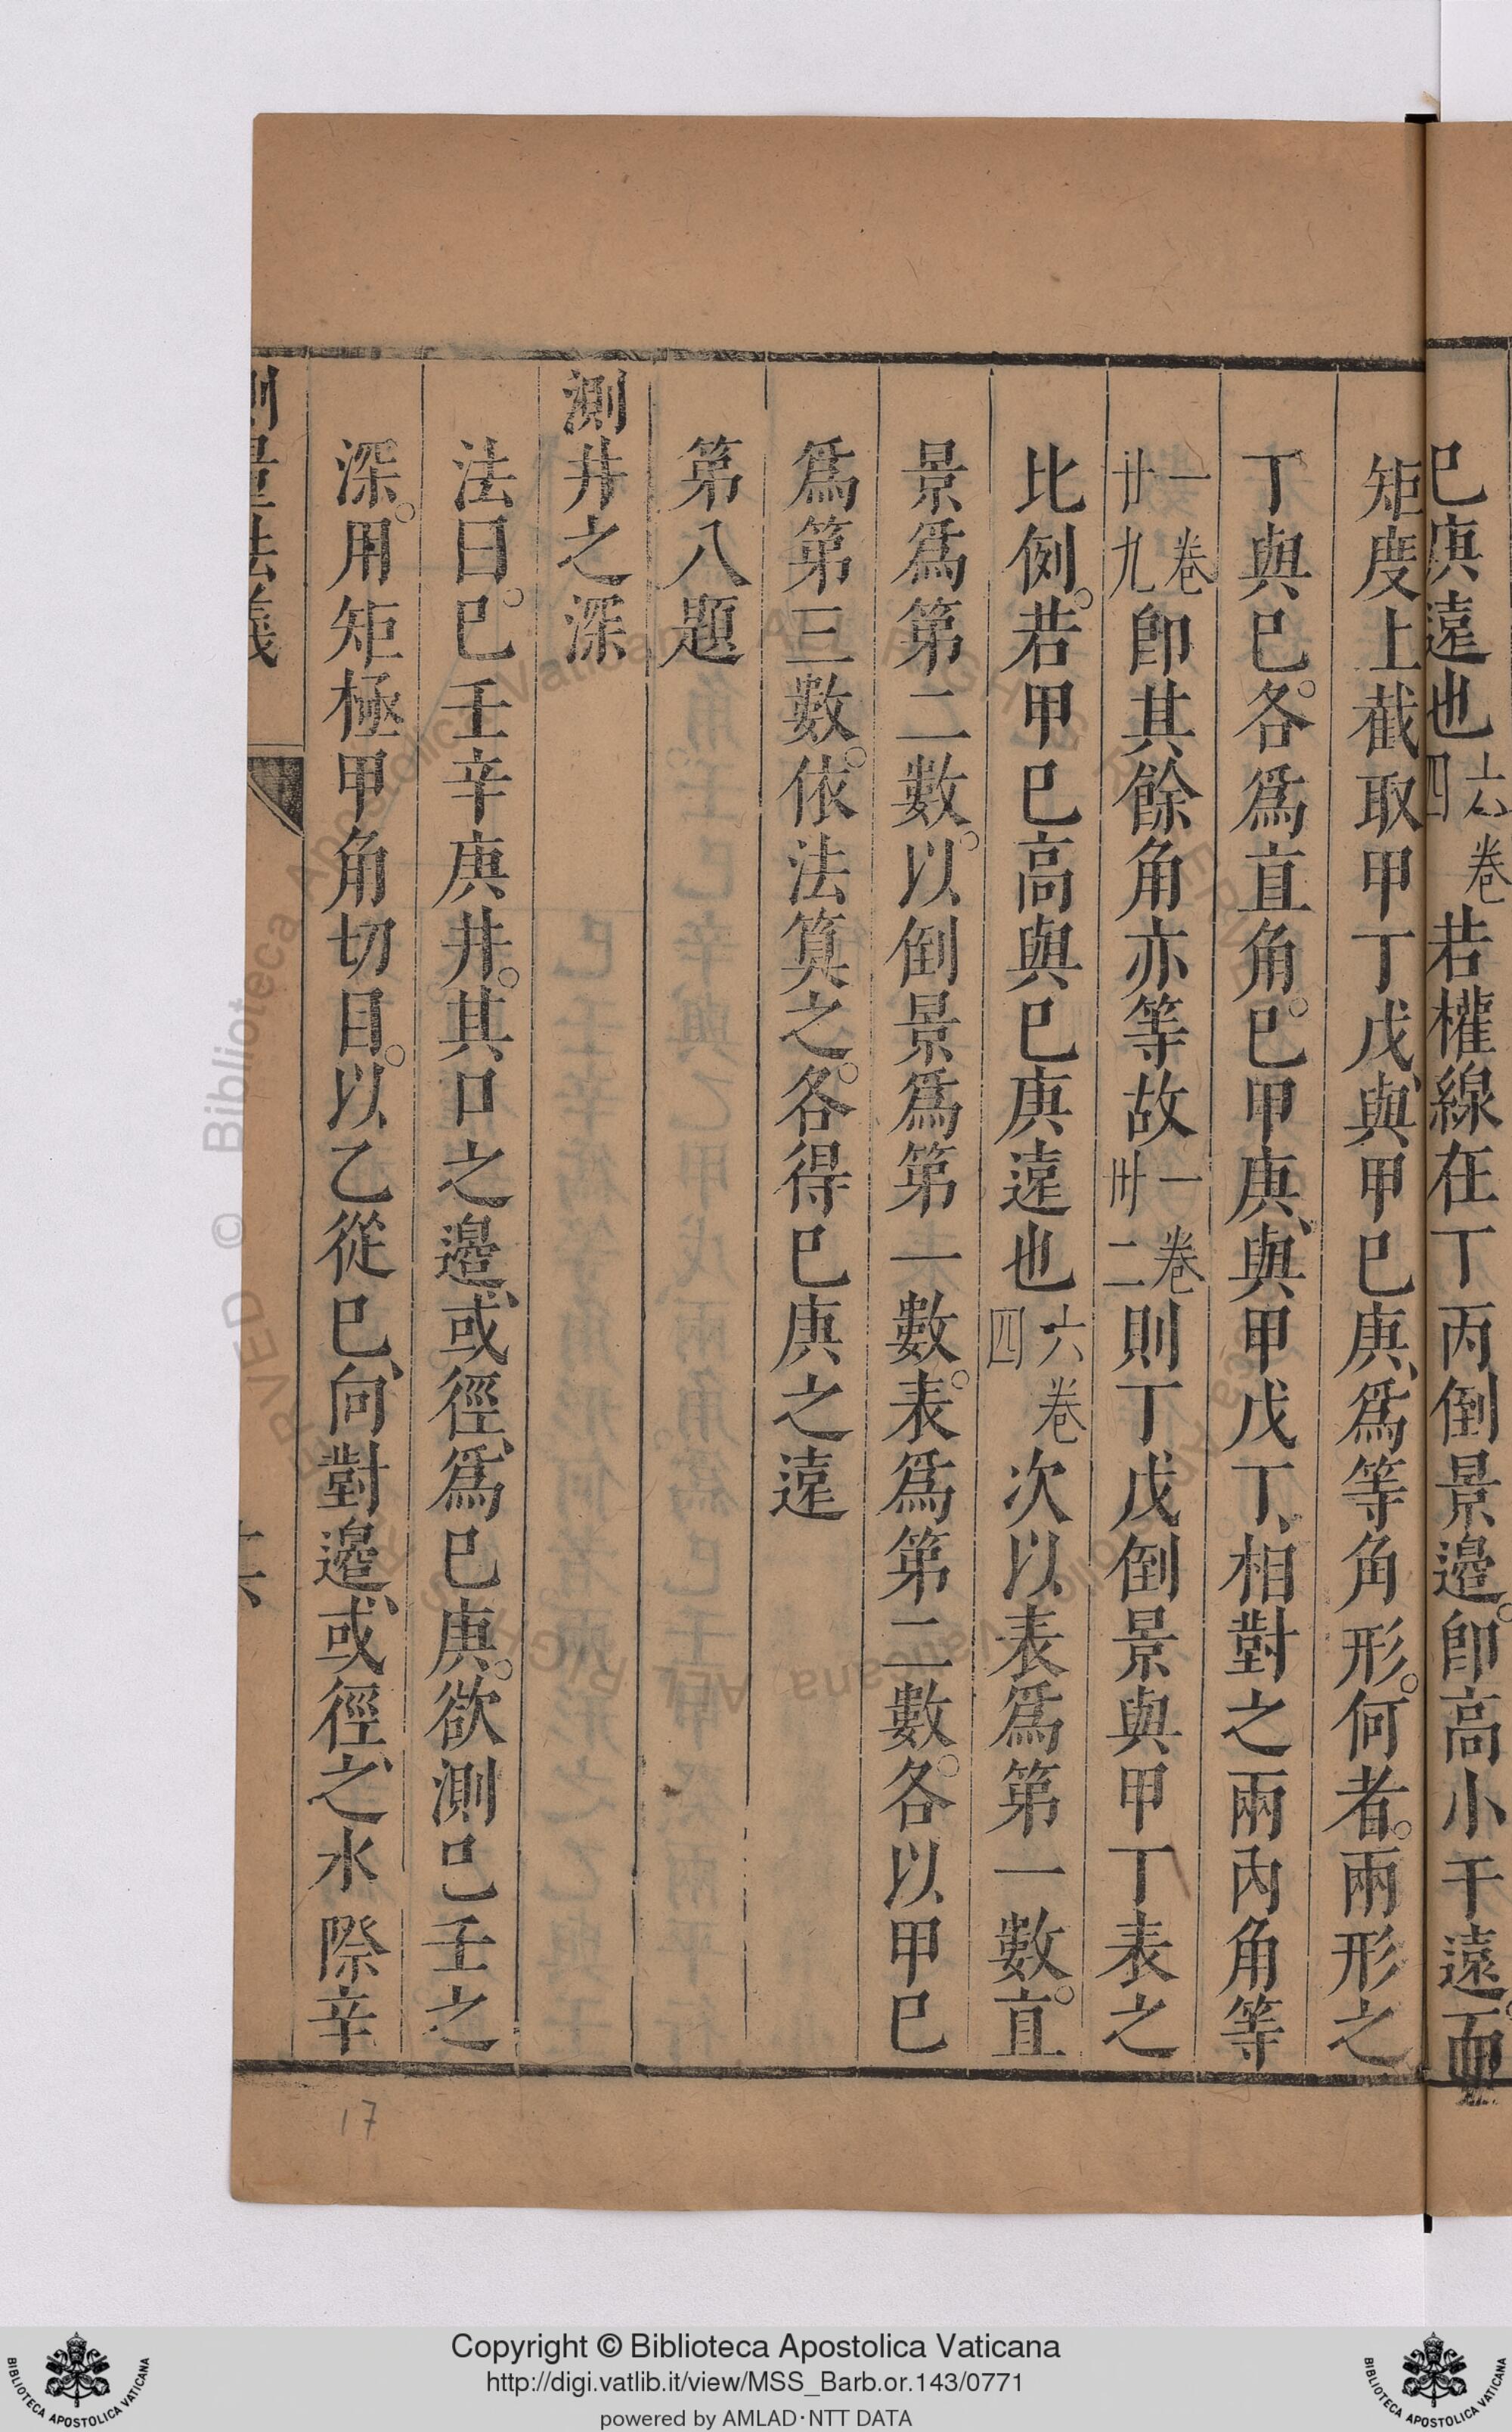 已庚遠也六卷四若權線在丁丙倒景邊。卽高小干遠。而
矩度上截取甲丁戊、與甲巳庚、爲等角形。何者。兩形之
丁與巳。各爲直角。巳甲庚、與甲戊丁、相對之兩內角等
一卷廿九卽其餘角亦等故一卷卅二則丁戊倒景與甲丁表之
比例。若甲巳高與巳庚遠也六卷四次以表爲第一數。直
景爲第二數。以倒景爲第一數。表爲第二數。各以甲巳
爲第三數。依法筭之。各得巳庚之遠
第八題
測井之深
法曰。巳壬辛庚井。其口之邊、或徑、爲巳庚。欲測巳壬之
深。用矩極甲角切目。以乙從巳、向對邊、或徑、之水際辛
測量法義
十六
17
Copyright © Biblioteca Apostolica Vaticana
http://digi.vatlib.it/view/MSS_Barb.or.143/0771
powered by AMLAD·NTT DATA
BIBLIOTECA APOSTOLICA VATICANA
BIBLIOTECA APOSTOLICA VATICANA